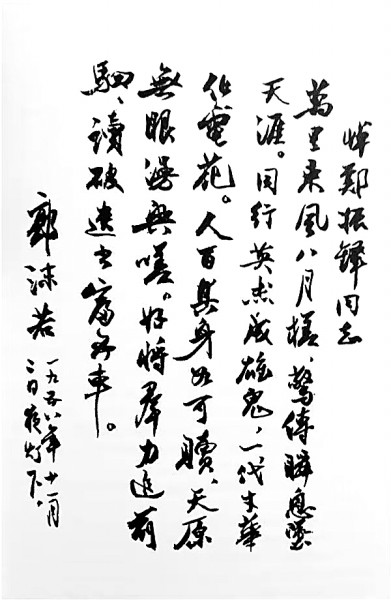 悼鄭振鐸同志
萬里乘風八月槎，驚傳瞬息墜
天涯。同行英杰成雄鬼，一代才華
化電花。人百其身如可贖，天原
無眼漫興嗟。好將羣力追前
駟、讀破遺書富五車。
郭沫若
一九五八年十一月
二日夜灯下